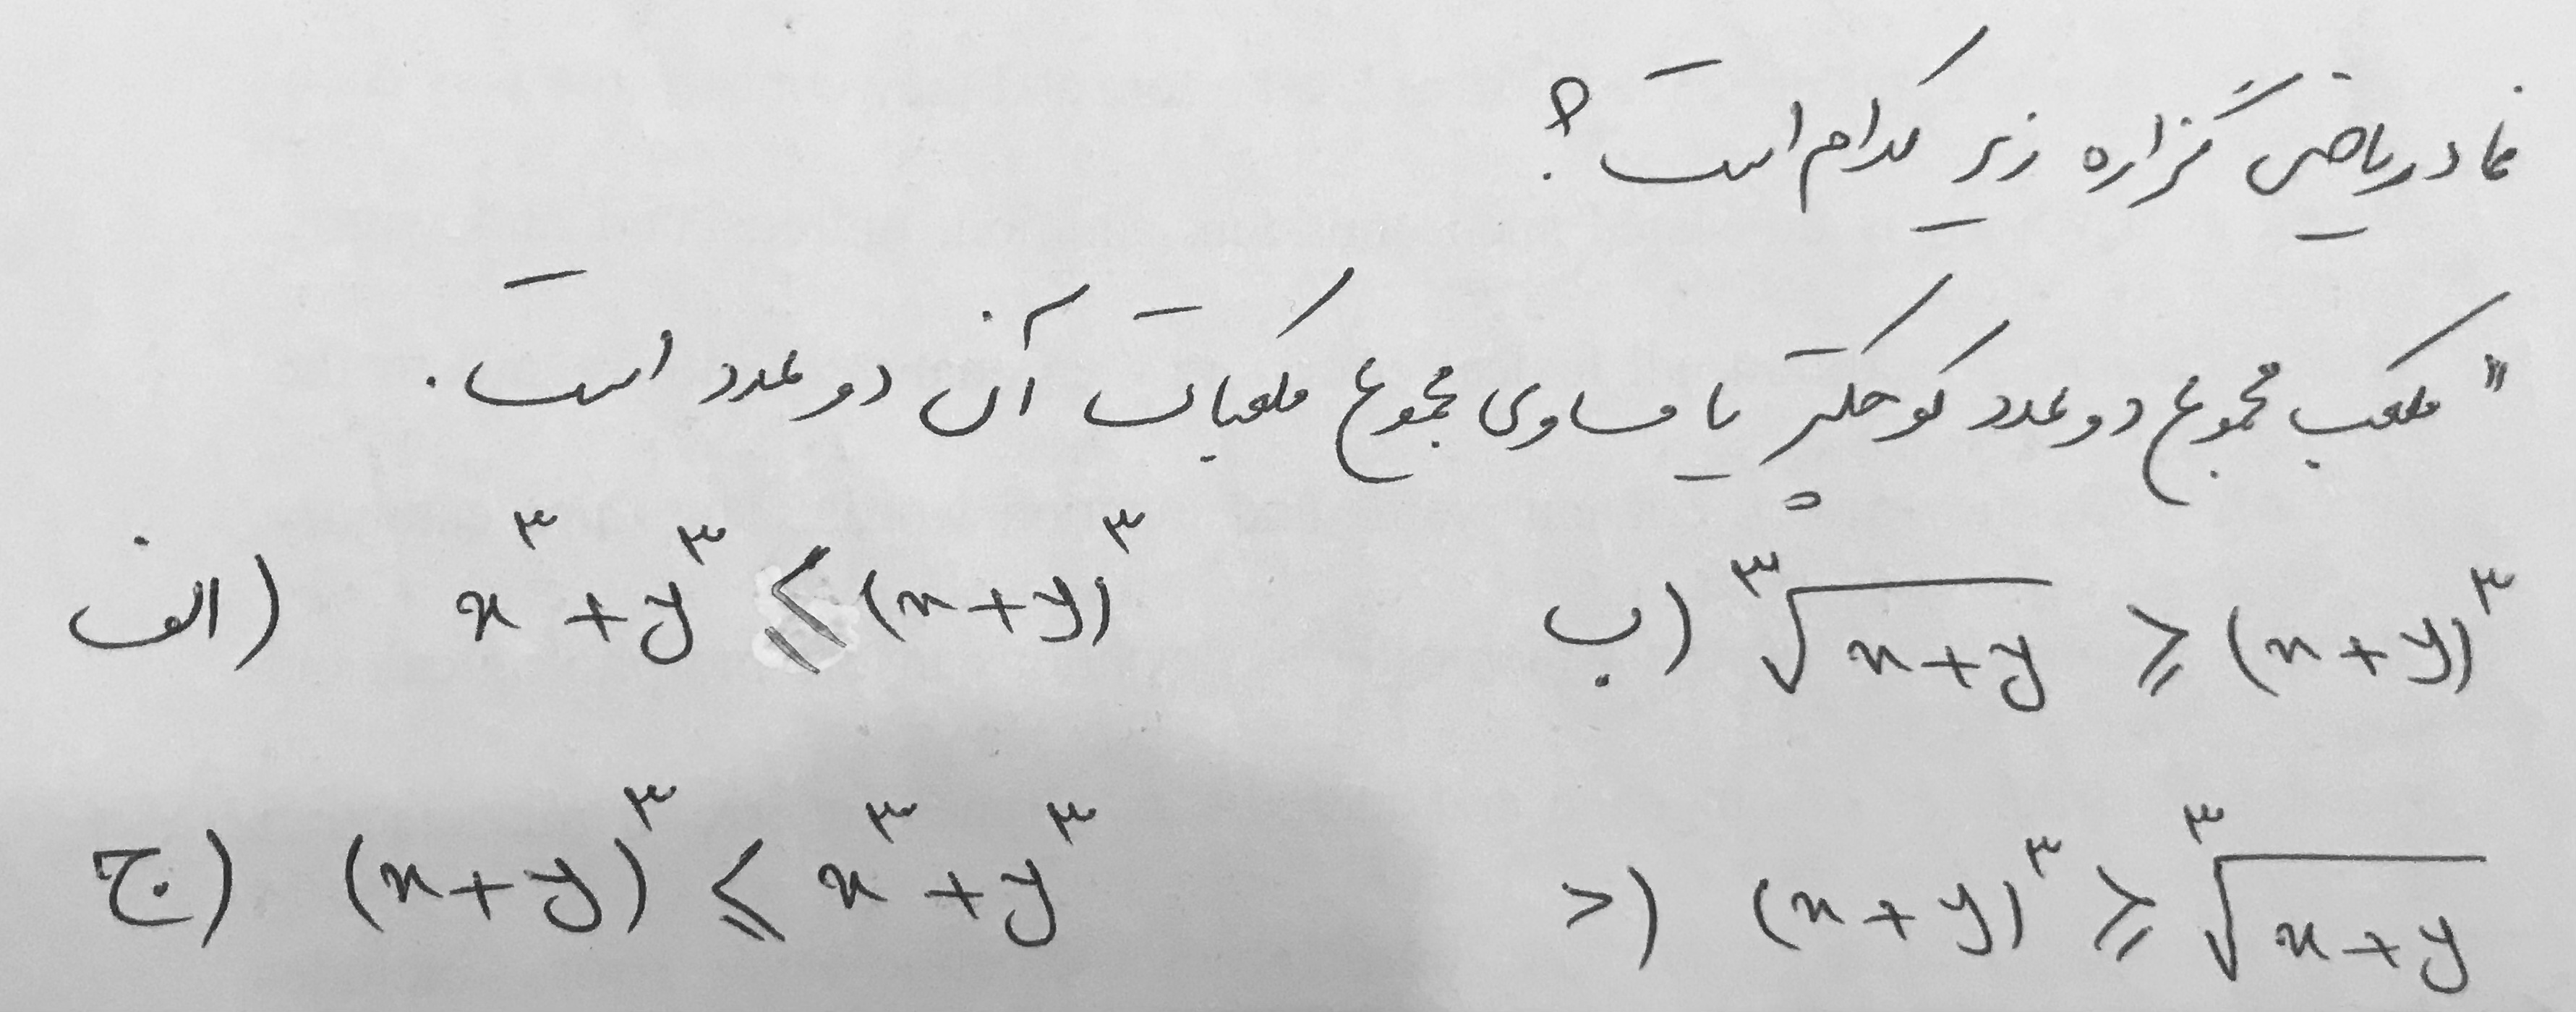 نماد ریاضی گزاره زیر کدام است؟
"مکعب مجموع دو عدد کوچکتر یا مساوی مجموع مکعبات آن دو عدد است.
الف) x^۳ + y^۳ ≤ (x+y)^۳
ب) ∛(x+y) ≥ (x+y)^۳
ج) (x+y)^۳ ≤ x^۳ + y^۳
د) (x+y)^۳ ≥ ∛(x+y)